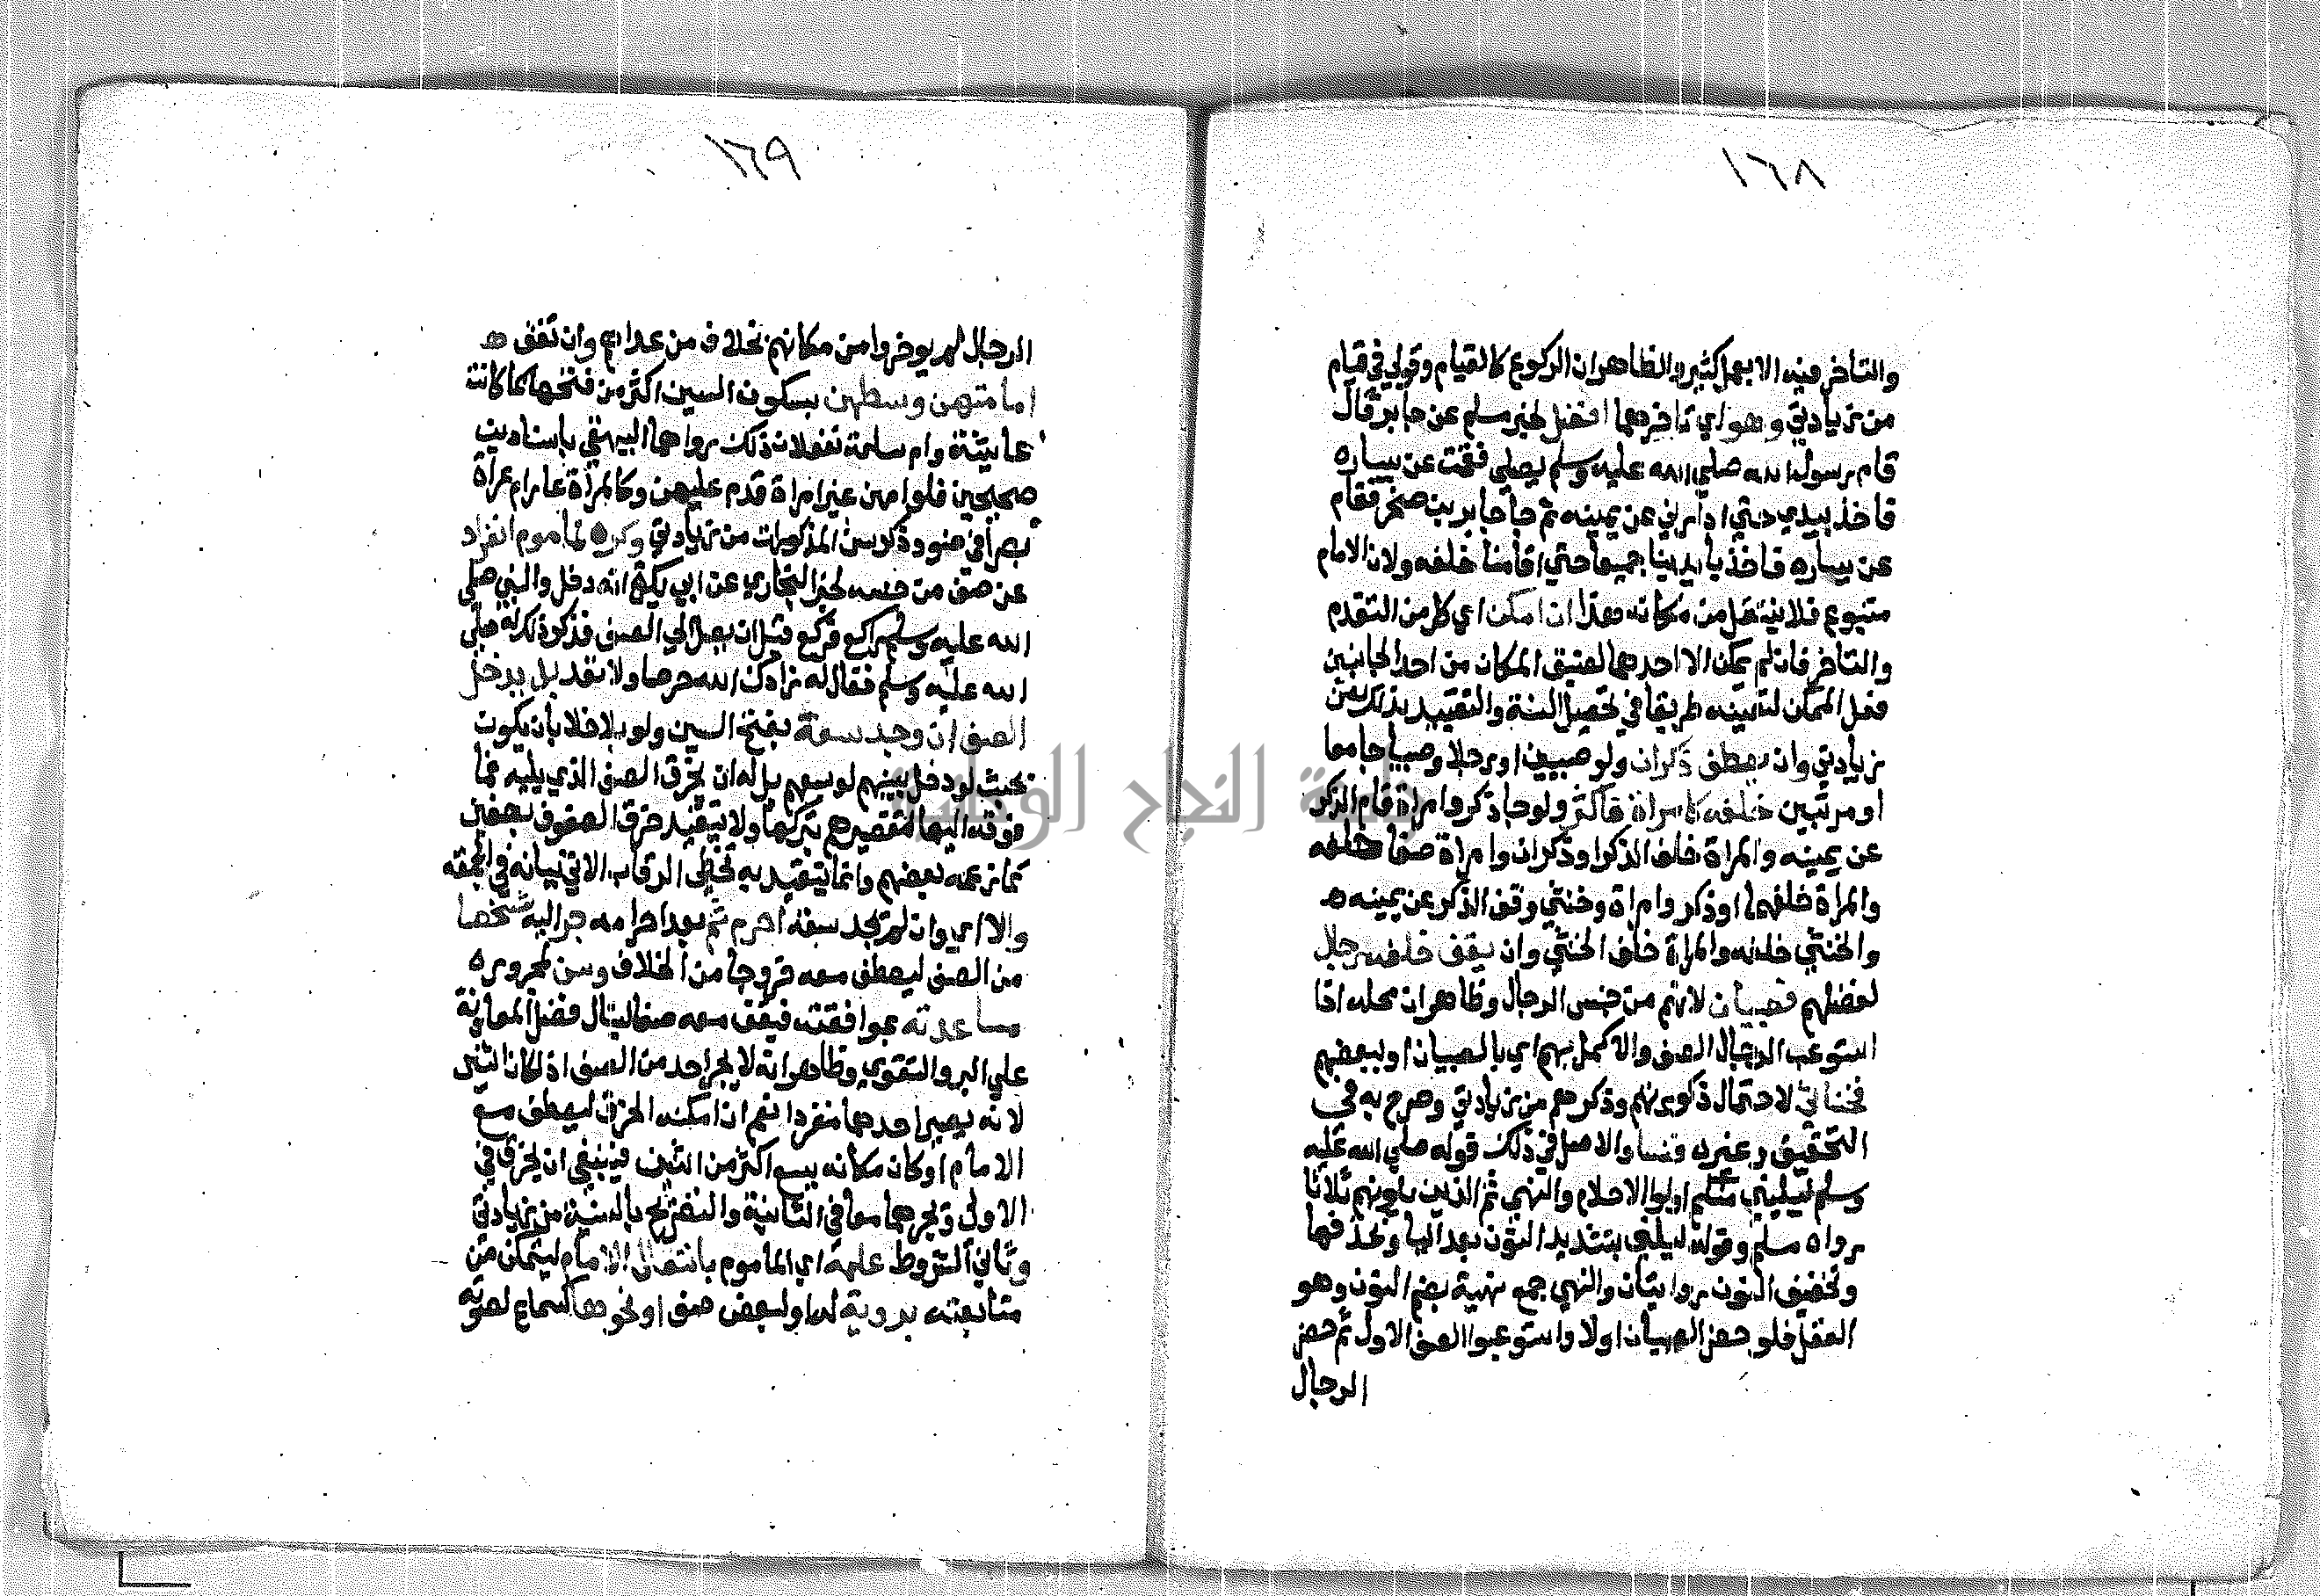 ١٦٨
والتاخر فيه الا بعمل كثير والظاهر ان الركوع كالقيام وقولي في قيام
من زيادتي وهو اي تاخرهما افضل لخبر مسلم عن جابر قال
قام رسول الله صلي الله عليه وسلم يصلي فقمت عن يساره
فاخذ بيدي حتي ادارني عن يمينه ثم جا جابر بن صخر فقام
عن يساره فاخذ بايدينا جميعا حتي اقامنا خلفه ولان الامام
متبوع فلا ينتقل من مكانه هذا ان امكن اي كل من التقدم
والتاخر فان لم يمكن الا احدهما لضيق المكان من احد الجانبين
فعل الممكن لتعينه طريقا في تحصيل السنة والتقييد بذلك من
زيادتي وان يصطف ذكران ولو صبيين او رجلا وصبيا جا معا
او مرتبين خلفه كامراة فاكثر ولو جا ذكر وامراة قام الذكر
عن يمينه والمراة خلف الذكر او ذكران وامراة صفا خلفه
والمراة خلفهما او ذكر وامراة وخنثي وقف الذكر عن يمينه ه
والخنثي خلفه والمراة خلف الخنثي وان يقف خلفه رجال
لفضلهم فصبيان لانهم من جنس الرجال وظاهر ان محله اذا
استوعب الرجال الصف والا كمل بهم اي بالصبيان او ببعضهم
فخناثي لاحتمال ذكورتهم وذكرهم من زيادتي وصرح به في
التحقيق وغيره فنسا والاصل في ذلك قوله صلي الله عليه
وسلم ليليني منكم اولوا الاحلام والنهي ثم الذين يلونهم ثلاثا
رواه مسلم وقوله ليليني بتشديد النون بعد اليا وبحذفها
وتخفيف النون روايتان والنهي جمع نهية بضم النون وهو
العقل فلو حضر الصبيان اولا واستوعبوا الصف الاول ثم حضر
الرجال
١٦٩
الرجال لم يوخروا من مكانهم بخلاف من عداهم وان تقف ه
امامتهن وسطهن بسكون السين اكثر من فتحها كما كانت
عايشة وام سلمة تفعلان ذلك رواهما البيهقي باسنادين
صحيحين فلو امهن غير امراة قدم عليهن وكالمراة عار ام عراة
بصرا في ضوء وذكر سن المذكورات من زيادتي وكره لماموم انفراد
عن صف من جنسه لخبر البخاري عن ابي بكرة انه دخل والنبي صلي
الله عليه وسلم راكع فركع قبل ان يصل الي الصف فذكر ذلك له صلي
الله عليه وسلم فقال له زادك الله حرصا ولا تعد بل يدخل
الصف ان وجد سعة بفتح السين ولو بلا خلا بان يكون
بحيث لو دخل بينهم لوسعهم بل له ان يخرق الصف الذي يليه فما
فوقه اليها لتقصيرهم بتركها ولا يتقيد خرق الصفوف بصفين
كما زعمه بعضهم وانما يتقيد به تخطي الرقاب الاتي بيانه في الجمعة
والا اي وان لم يجد سعة احرم ثم بعد احرامه جر اليه شخصا
من الصف ليصطف معه خروجا من الخلاف وسن لمجروره
مساعدته بموافقته فيقف معه صفا لينال فضل المعاونة
علي البر والتقوي وظاهر انه لا يجر احد من الصف اذا كان اثنين
لانه يصير احدهما منفردا نعم ان امكنه الخرق ليصطف مع
الامام او كان مكانه يسع اكثر من اثنين فينبغي ان يخرق في
الاولي ويجرهما معا في الثانية والتصريح بالسنية من زيادتي
وثاني الشروط علمه اي الماموم بانتقال الامام ليتمكن من
متابعته بروية له او لبعض صف او نحوهما كسماع لصوته